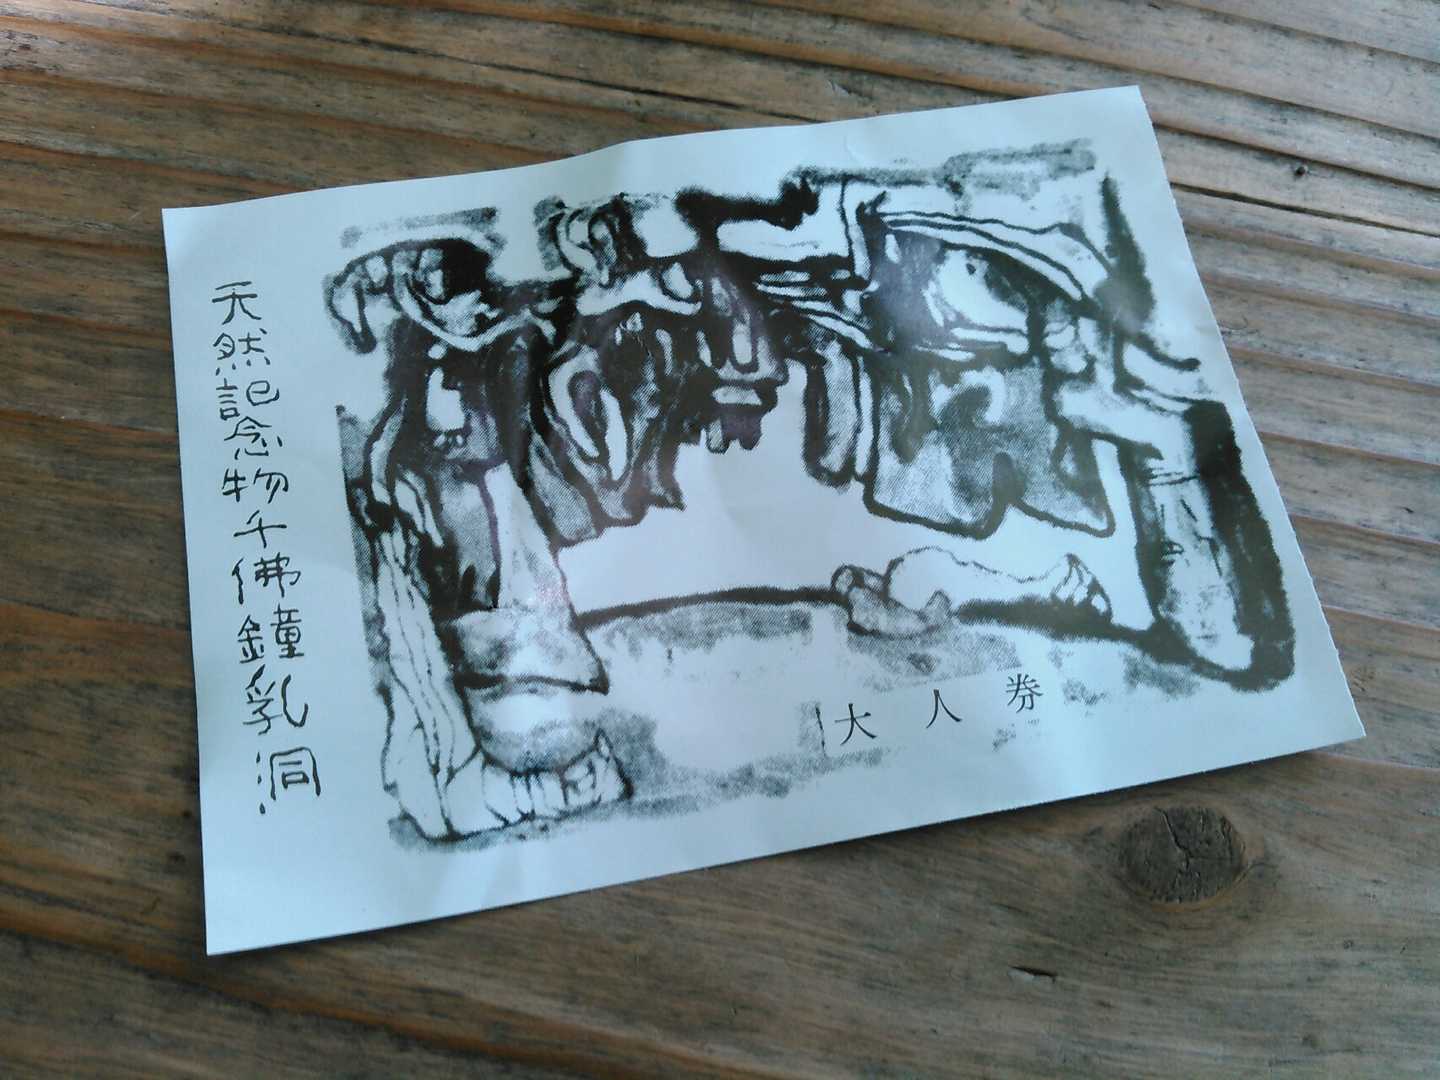 天然記念物千佛鐘乳洞
大人券